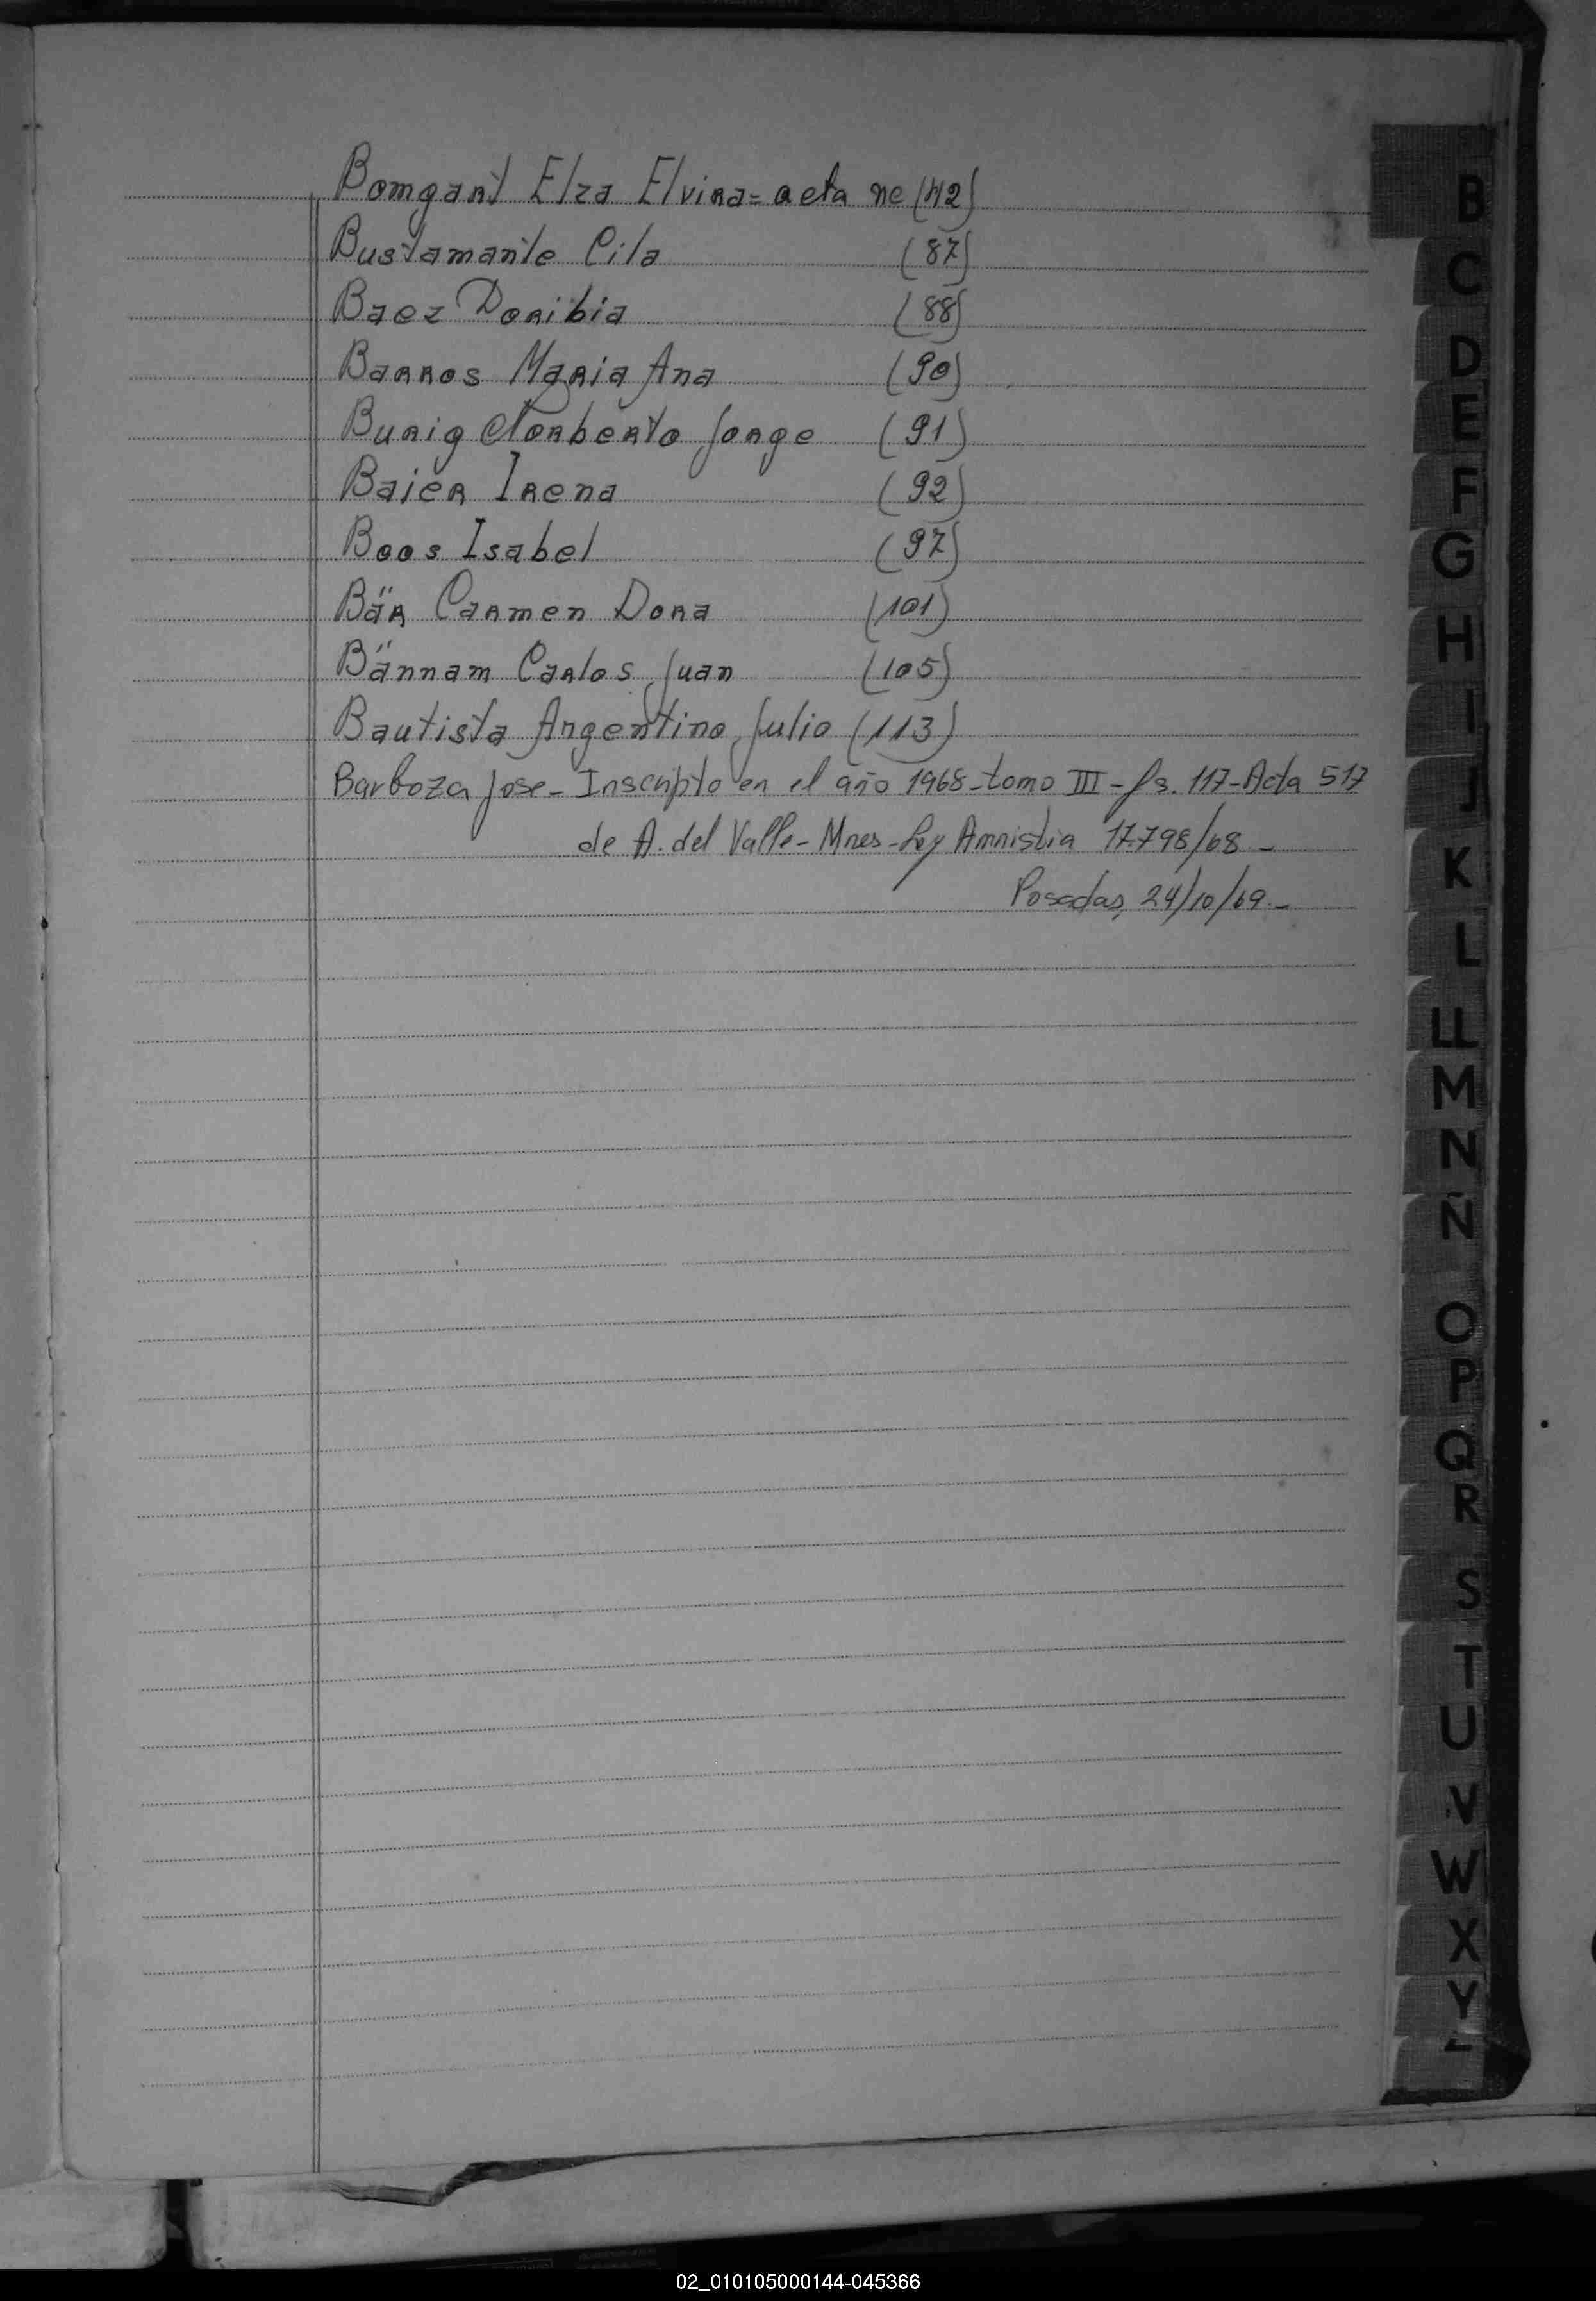 Bomgart Elza Elvira = acta ne (42)
Bustamante Cila (87)
Baez Doribia (88)
Barros Maria Ana (90)
Burig Norberto Jorge (91)
Baier Irena (92)
Boos Isabel (97)
Bär Carmen Dora (101)
Bännam Carlos Juan (105)
Bautista Argentino Julio (113)
Barboza Jose - Inscripto en el año 1968 - tomo III - fs. 117 - Acta 517
de A. del Valle - Mnes - Ley Amnistia 17.798/68 -
Posadas, 24/10/69. -
B
C
D
E
F
G
H
I
J
K
L
LL
M
N
Ñ
O
P
Q
R
S
T
U
V
W
X
Y
Z
02_010105000144-045366